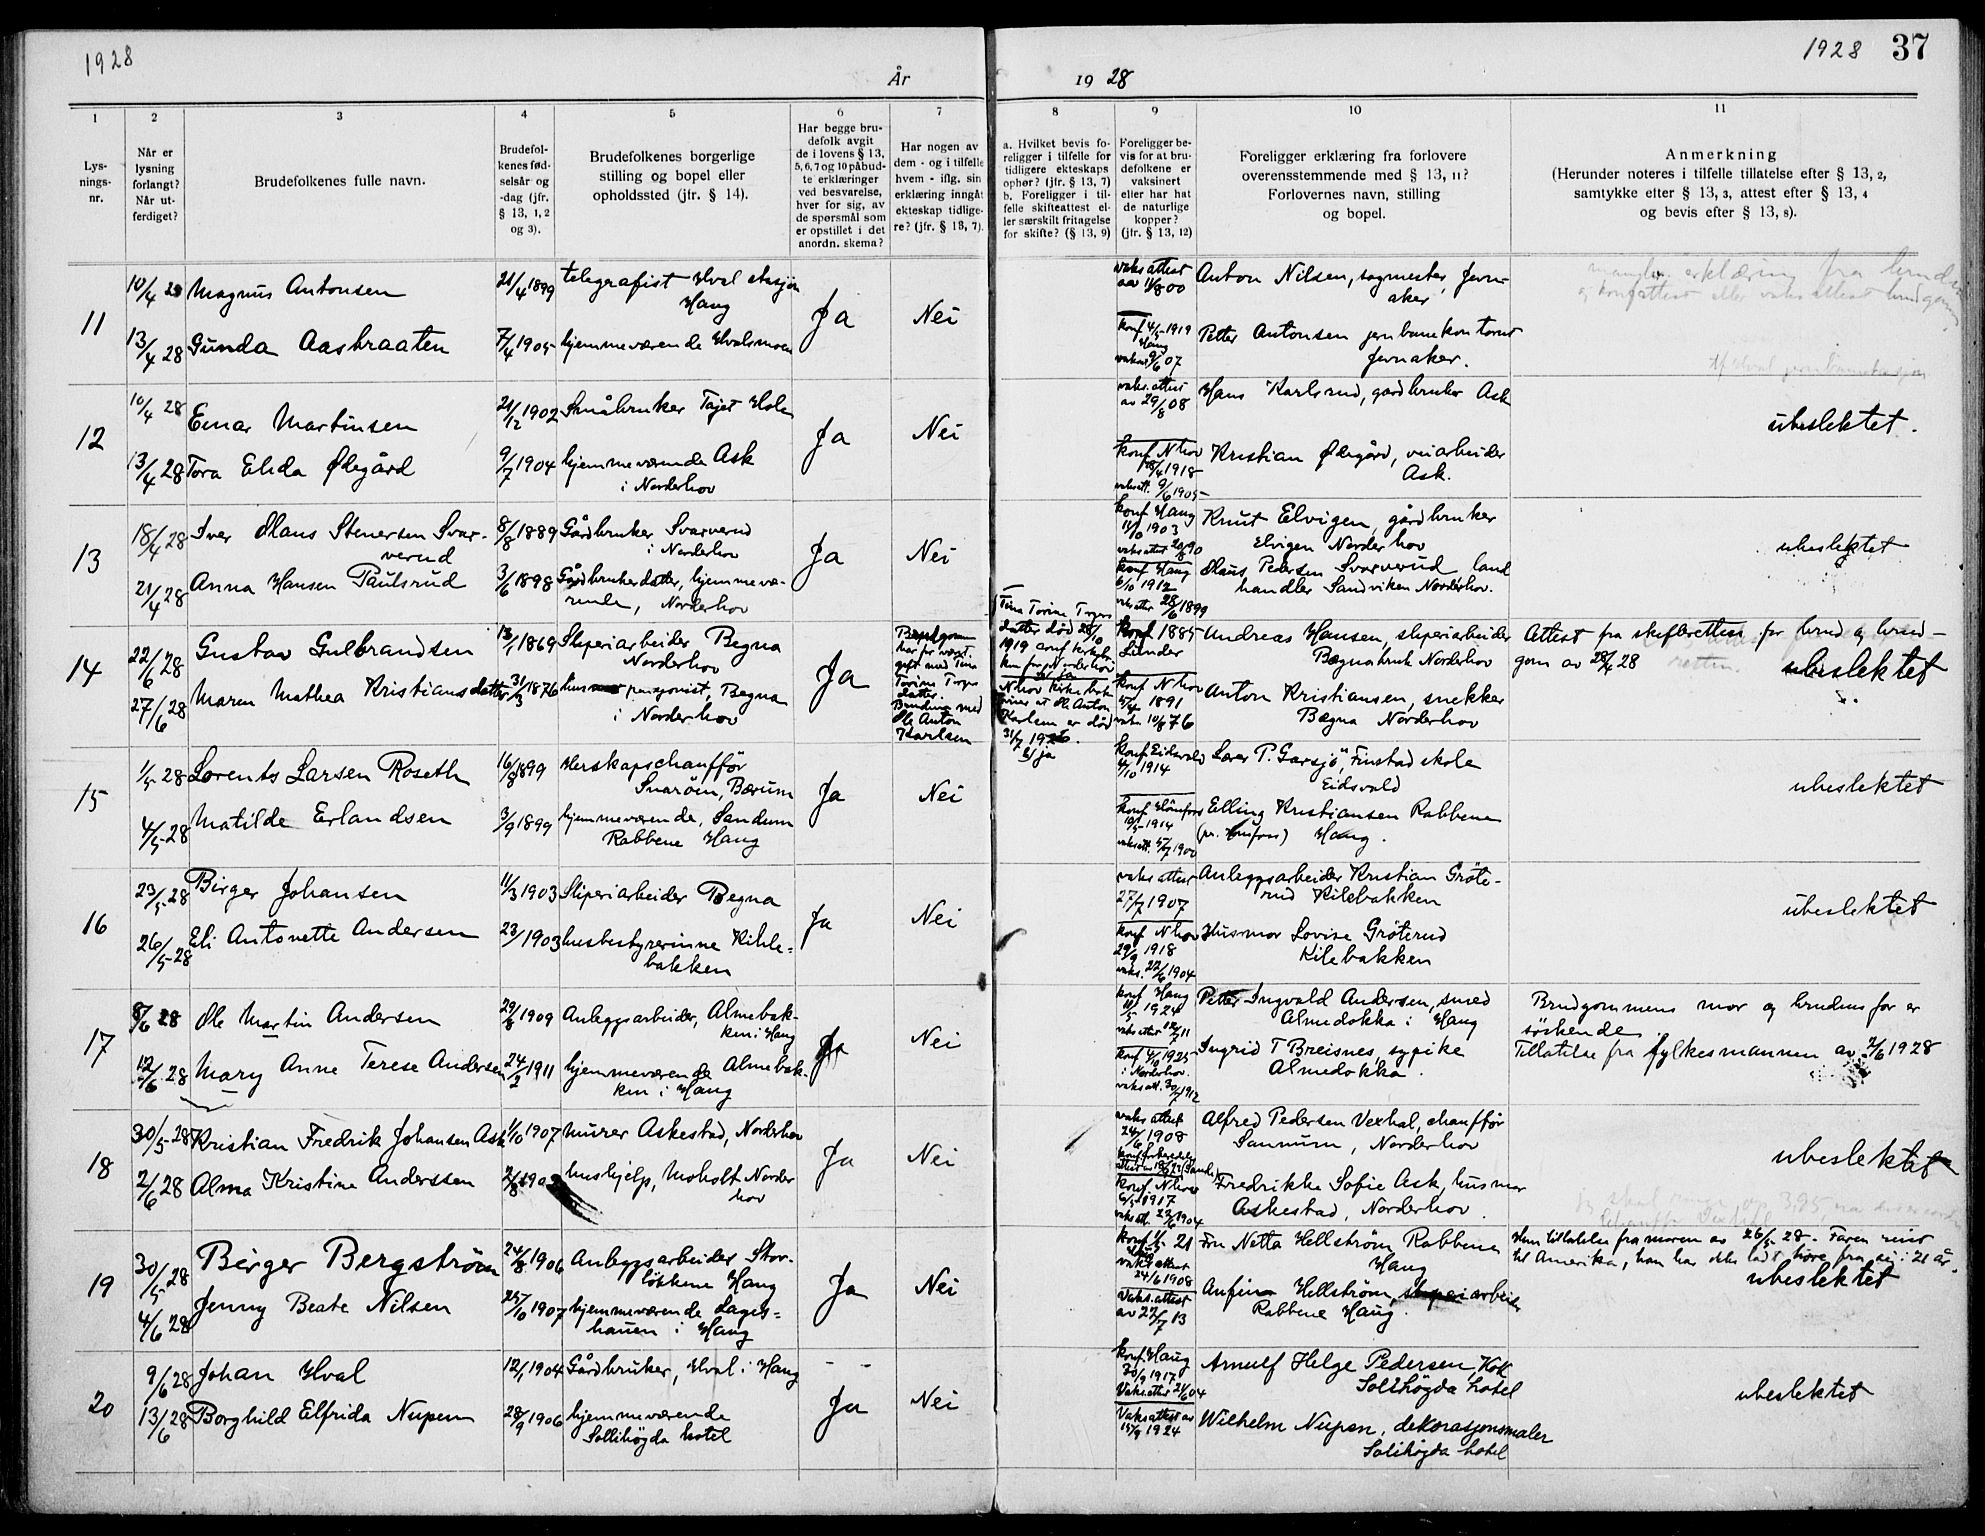 1928
År
19 28
1928 37
1
2
3
4
5
6
7
8
9
10
11
Lys-
nings-
nr.
Når er
lysning
forlangt?
Når ut-
ferdiget?
Brudefolkenes fulle navn.
Brudefol-
kenes fød-
selsår og
-dag (jfr.
§ 13, 1, 2
og 3).
Brudefolkenes borgerlige
stilling og bopel eller
opholdssted (jfr. § 14).
Har begge bru-
defolk avgit
de i lovens § 13,
5, 6, 7 og 10 påbud-
te erklæringer
ved besvarelse,
hver for sig, av
de spørsmål som
er opstillet i det
anordn. skema?
Har nogen av
dem - og i tilfelle
hvem - iflg. sin
erklæring inngåt
ekteskap tidlige-
re? (jfr. § 13, 7).
a. Hvilket bevis fo-
religger i tilfelle for
tidligere ekteskaps
ophør? (jfr. § 13, 7)
b. Foreligger i til-
felle skifteattest el-
ler særskilt fritagelse
for skifte? (§ 13, 9)
Foreligger be-
vis for at bru-
defolkene er
vaksinert
eller har hat
de naturlige
kopper?
(jfr. § 13, 12)
Foreligger erklæring fra forlovere
overensstemmende med § 13, 11?
Forlovernes navn, stilling
og bopel.
Anmerkning
(Herunder noteres i tilfelle tillatelse efter § 13, 2,
samtykke efter § 13, 3, attest efter § 13, 4
og bevis efter § 13, 8).
11
10/4 28 Magnus Antonsen 21/4 1899 telegrafist Hval stasjon
Haug
Ja Nei
vaks attest
av 11/8 00
Anton Nilsen, sagmester, Jevn-
aker
13/4 28 Gunda Aasbraaten 7/4 1905 hjemmeværende Hvalsmoen
konf 4/5 1919
Haug
Petter Antonsen jernbanekontorist
Jevnaker.
mangler erklæring fra
12
10/4 28 Einar Martinsen 21/12 1902 Småbruker Tajet Hole
Ja Nei
vaks. attest
av 29/8 08
Hans Karlsrud, gardbruker Ask
ubeslektet.
13/4 28 Tora Elida Ødegård 9/7 1904 hjemmeværende Ask
i Norderhov
konf N hov
1918
vaksatt. 9/6 1905
Kristian Ødegård, veiarbeider
Ask.
13
18/4 28 Iver Olaus Stenersen Svar-
verud
8/8 1889 Gårdbruker Svarverud
i Norderhov
Ja Nei
konf Haug
1903
vaks attest 20/8 90
Knut Elvigen, gårdbruker
Elvigen Norderhov
ubeslektet
21/4 28 Anna Hansen Paulsrud 3/6 1898 Gårdbrukerdatter, hjemmevæ-
rende, Norderhov
konf Haug
6/10 1912
vaks attest 28/6 1899
Olaus Pedersen Svarverud land
handler Sandviken Norderhov.
14
22/6 28 Gustav Gulbrandsen 13/1 1869 Sliperiarbeider Begna
Norderhov
Ja
Brudgom
har før været
gift med Tina
Torine Torgers
datter.
Bruden med
Ole Anton
Karlsen
Tina Torine Torgers
datter død 28/10
1919
N hov
at Ole Anton
Karlsen er død
31/7 1926.
b) ja
konf 1885
Lunder
Andreas Hansen, sliperiarbeider
Bægnabruk Norderhov
Attest fra skifteretten for brud og brud-
gom av 28/4 28
ubeslektet
27/6 28 Maren Mathea Kristiansdatter 31/3 1876 pensjonist, Begna
i Norderhov
konf N hov
1891
vaks. 10/8 76
Anton Kristiansen, snekker
Bægna Norderhov
15
1/5 28 Lorents Larsen Roseth 16/8 1899 Herskapschauffør
Snarøen, Bærum
Ja Nei
konf Eidsvold
4/10 1914
Lærer P. Garsjø, Finstad skole
Eidsvold
ubeslektet
4/5 28 Matilde Erlandsen 3/9 1899 hjemmeværende, Sandum
Rabbene Haug
konf Hønefoss
10/5 1914
Elling Kristiansen Rabbene
(pr. Hønefoss) Haug.
16
23/5 28 Birger Johansen 11/3 1903 Sliperiarbeider Begna
Ja Nei
vaks attest
27/7 1907
Anleggsarbeider Kristian Grøte-
rud Kilebakken
ubeslektet
26/5 28 Eli Antonette Andersen 23/1 1903 husbestyrerinne Kihle-
bakken
konf N hov
29/9 1918
vaks. 22/6 1904
Husmor Lovise Grøterud
Kilebakken
17
8/6 28 Ole Martin Andersen 29/8 1909 Anleggsarbeider, Almebak-
ken i Haug
Ja Nei
konf Haug
11/5 1924
Petter Ingvald Andersen, smed
Almedokka i Haug
Brudgommens mor og brudens far er
søskende.
Tillatelse fra fylkesmannen av 2/6 1928
12/6 28 Mary Anne Terese Andersen 24/2 1911 hjemmeværende Almebak-
ken i Haug
konf 4/10 1925
i Norderhov.
vaks att. 30/7 1912
Ingrid T Breisnes, sypike
Almedokka.
18
30/5 28 Kristian Fredrik Johansen Ask 1/10 1907 Murer Askestad, Norderhov
Ja Nei
vaks attest
24/6 1908
Alfred Pedersen Vexhal, chauffør
Sannum, Norderhov
ubeslektet
2/6 28 Alma Kristine Anderssen 2/8 1902 hushjelp, Moholt Norder
hov
konf N hov
1917
vaks att. 1904
Fredrikke Sofie Ask, husmor
Askestad, Norderhov
19
30/5 28 Birger Bergstrøm 24/8 1906 Anleggsarbeider Stor-
løkkene Haug
Ja Nei
konf 21
Haug
vaks attest
24/6 1908
Fru Netta Hellstrøm Rabbene
Haug
Hun tillatelse fra moren av 26/5 28. Faren reist
til Amerika, han har ikke latt høre fra sig i 21 år.
ubeslektet
4/6 28 Jenny Beate Nilsen 25/10 1907 hjemmeværende Lages-
hauen i Haug
Vaks. attest
av 22/7 13
Anfinn Hellstrøm, sliperiarbeider
Rabbene Haug.
20
9/6 28 Johan Hval 12/1 1904 Gårdbruker, Hval i Haug
Ja Nei
konf. Haug
30/9 1917
Vaks. attest 21/6 04
Arnulf Helge Pedersen, Kokk
Sollihøgda hotel
ubeslektet
13/6 28 Borghild Elfrida Nupen 28/9 1906 hjemmeværende
Sollihøgda hotel
Vaksattest av
15/9 1924
Wilhelm Nupen, dekorasjonsmaler
Solihøgda hotel